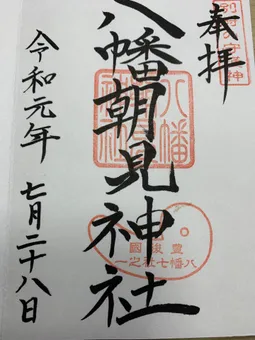 奉拝
八幡朝見神社
令和元年 七月二十八日
八幡
豊後國
八幡七社之一